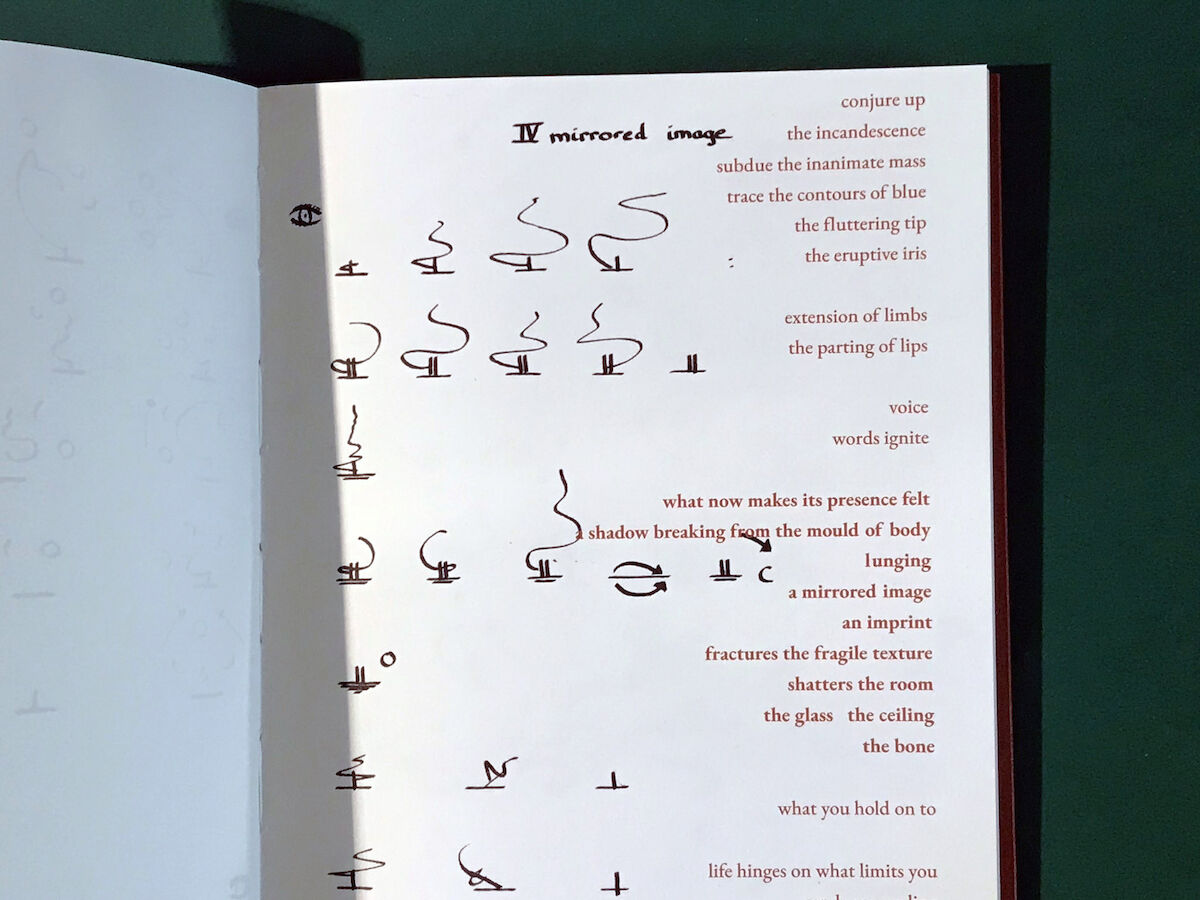 IV mirrored image
conjure up
the incandescence
subdue the inanimate mass
trace the contours of blue
the fluttering tip
the eruptive iris
extension of limbs
the parting of lips
voice
words ignite
what now makes its presence felt
a shadow breaking from the mould of body
lunging
a mirrored image
an imprint
fractures the fragile texture
shatters the room
the glass   the ceiling
the bone
what you hold on to
life hinges on what limits you